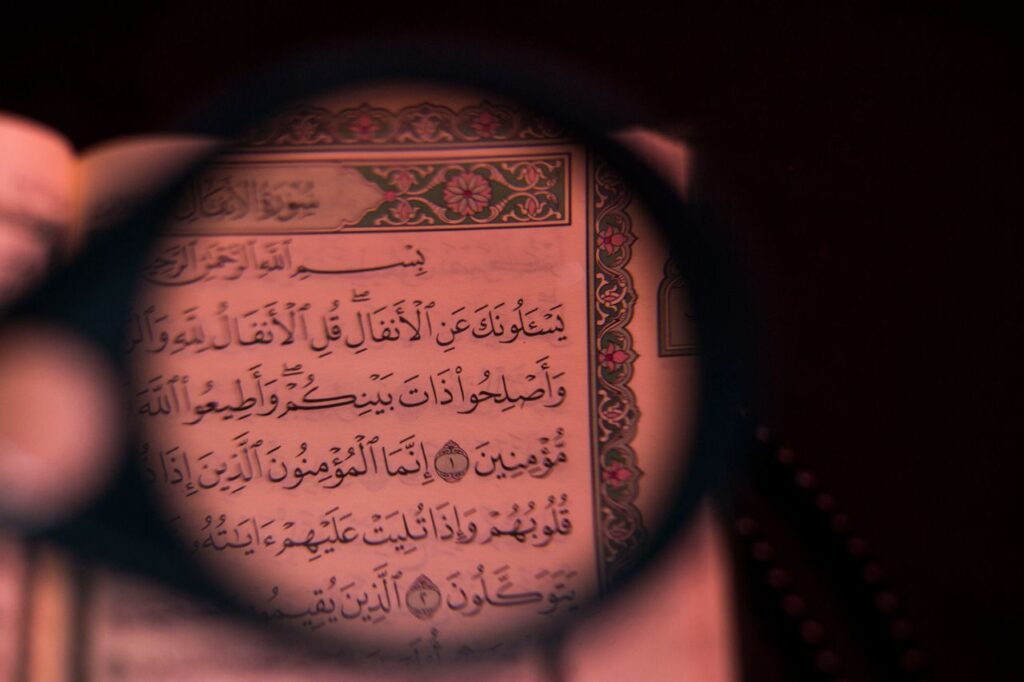 سُورَةُ الأَنفَالِ
بِسْمِ ٱللَّهِ ٱلرَّحْمَٰنِ
يَسْـَٔلُونَكَ عَنِ ٱلْأَنفَالِۖ قُلِ ٱلْأَنفَالُ لِلَّهِ
وَأَصْلِحُوا۟ ذَاتَ بَيْنِكُمْۖ وَأَطِيعُوا۟ ٱللَّهَ
مُّؤْمِنِينَ ١ إِنَّمَا ٱلْمُؤْمِنُونَ ٱلَّذِينَ إِذَا
قُلُوبُهُمْ وَإِذَا تُلِيَتْ عَلَيْهِمْ ءَايَـٰتُهُۥ
يَتَوَكَّلُونَ ٢ ٱلَّذِينَ